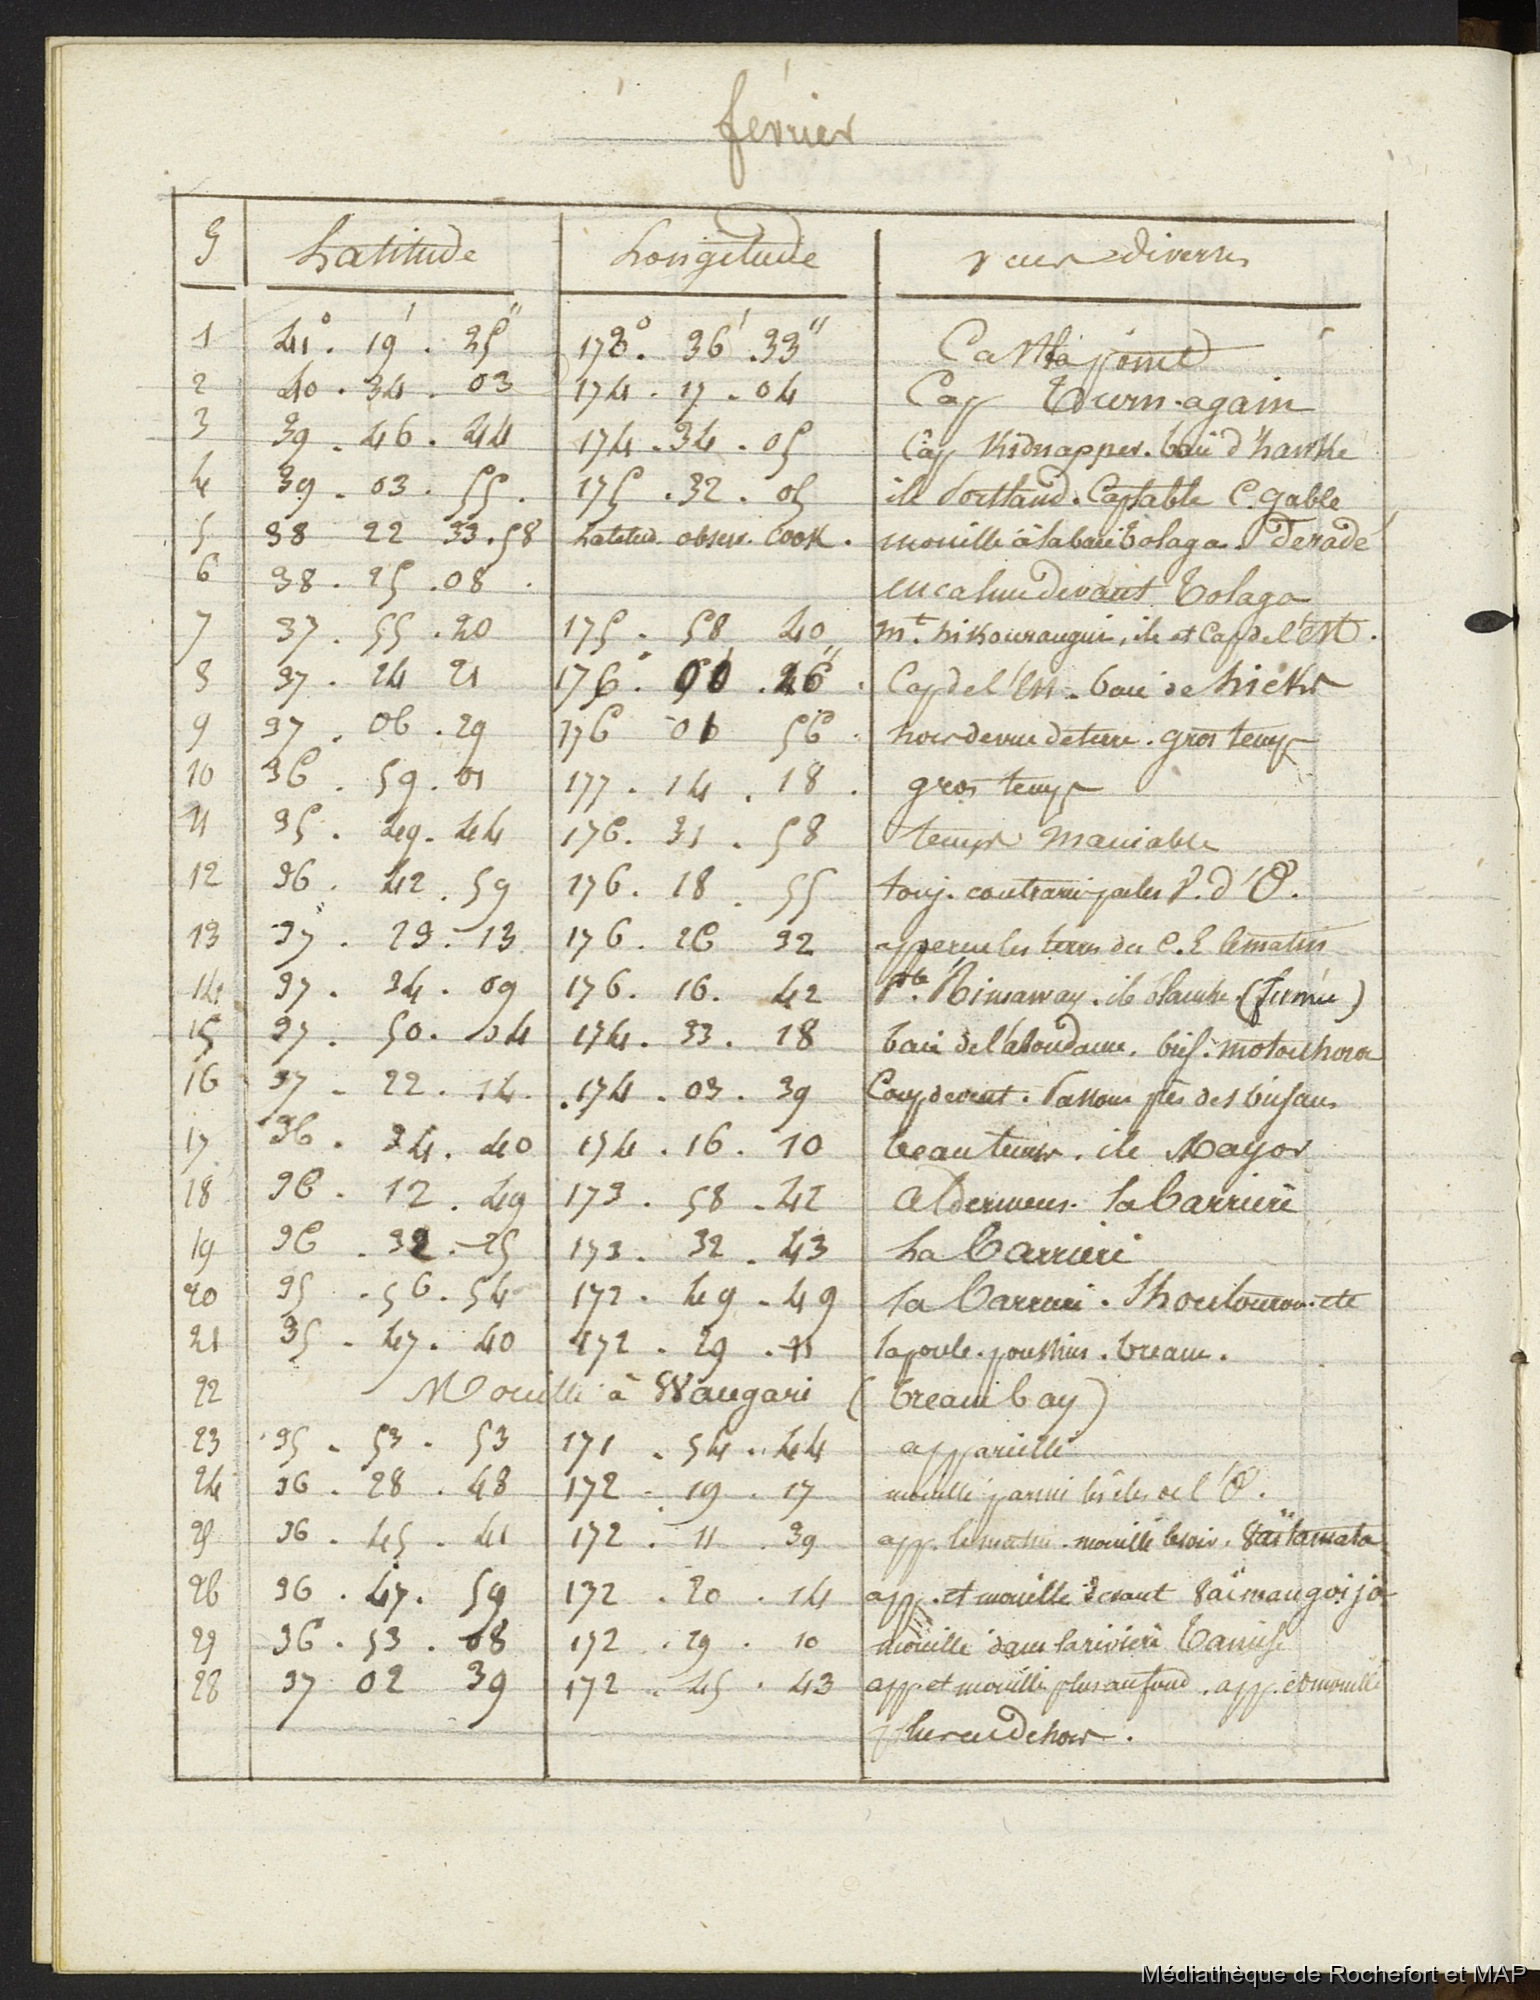 février
J Latitude Longitude vues diverses
1 41° . 19' . 25" 173° . 36' . 33" Castlepoint
2 40 . 34 . 03 174 . 17 . 04 Cap Turn-again
3 39 . 46 . 44 174 . 34 . 05 Cap Kidnapper . baie d'hawke
4 39 . 03 . 55 . 175 . 32 . 05 ile Portland . Cap table C. gable
5 38 22 33.58 Latitud. observ. Cook . mouillé à la baie Tolaga . Dérade
6 38 . 25 . 08 . en calme devant Tolaga
7 37 . 55 . 20 175 . 58 40 mt. hikourangui, ile et Cap de l'Est .
8 37 . 24 21 176° . 00' . 26" . Cap de l'Est . baie de hicks
9 37 . 06 . 29 176 01 56 . hors de vue de terre . gros temps
10 36 . 59 . 01 177 . 14 . 18 . gros temps
11 35 . 49 . 44 176 . 31 . 58 temps maniable
12 36 . 42 . 59 176 . 18 . 55 touj. contrarié par les V. d'O.
13 37 . 29 . 13 176 . 26 32 apperçu les terres du C. E le matin
14 37 . 34 . 09 176 . 16 . 42 pte. Runaway . ile blanche . (fumée)
15 37 . 50 . 04 174 . 33 . 18 baie de l'abondance . bris . motouhora
16 37 . 22 . 14 . 174 . 03 . 39 Coup de vent . Passons près des brisans
17 36 . 34 . 40 174 . 16 . 10 beau temps . ile Mayor
18 36 . 12 . 49 173 . 58 . 42 aldermens . la barrière
19 36 . 32 . 25 173 . 32 . 43 La barrière
20 35 . 56 . 54 172 . 49 . 49 la barrière . Shoutourou . etc
21 35 . 47 . 40 172 . 29 . 11 la poule . poussins . bream .
22 Mouillé à Wangari (bream bay)
23 35 . 53 . 53 171 . 54 . 44 appareillé
24 36 . 28 . 48 172 . 19 . 17 mouillé parmi les iles de l'O .
25 36 . 45 . 41 172 . 11 . 39 app. le matin . mouillé le soir .
26 36 . 47 . 59 172 . 20 . 14 app. et mouillé devant
29 36 . 53 . 08 172 . 29 . 10 mouillé dans la rivière Tamise
28 37 02 39 172 . 45 . 43 app. et mouillé plus au fond . app. et mouillé
plus en dehors .
Médiathèque de Rochefort et MAP